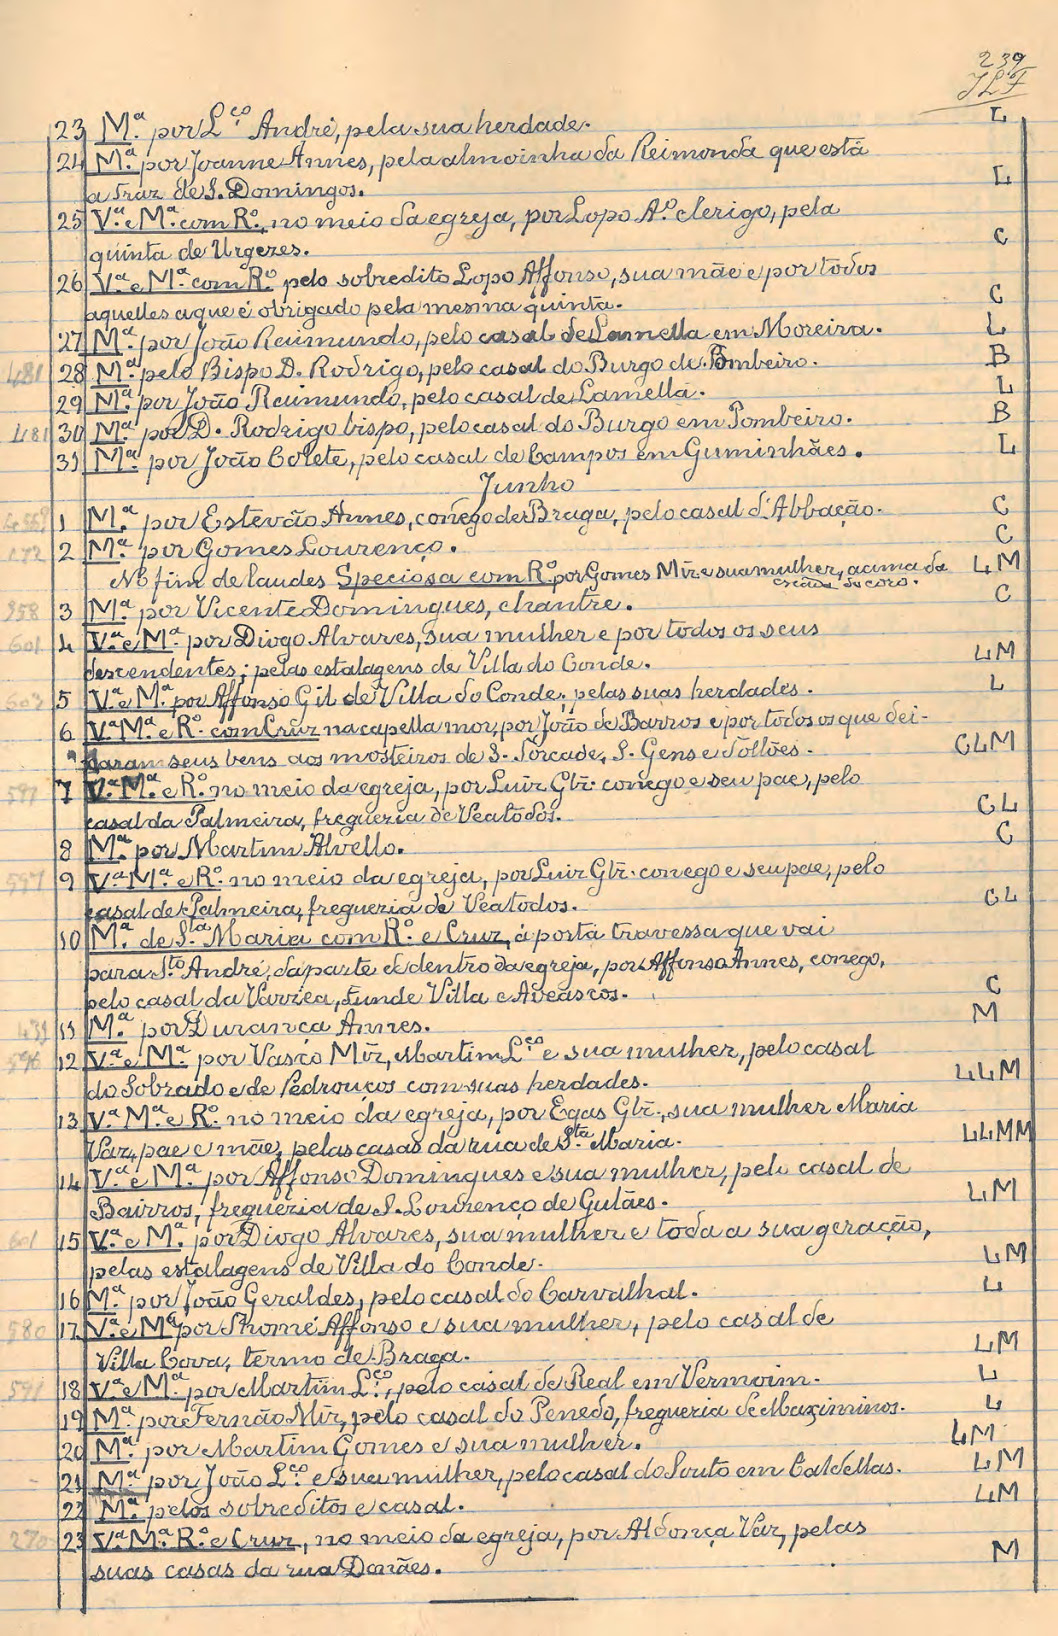 239
JLF
23 M.ª por L.ço André, pela sua herdade. L
24 M.ª por Joanne Annes, pela almoinha da Reimonda que está
a traz de S. Domingos. L
25 V.ª e M.ª com R.º, no meio da egreja, por Lopo A.º clerigo, pela
quinta de Urgezes. C
26 V.ª e M.ª com R.º pelo sobredito Lopo Affonso, sua mãe e por todos
aquelles a que é obrigado pela mesma quinta. C
27 M.ª por João Reimundo, pelo casal de Lamella em Moreira. L
481 28 M.ª pelo Bispo D. Rodrigo, pelo casal do Burgo de Pombeiro. B
29 M.ª por João Reimundo, pelo casal de Lamella. L
481 30 M.ª por D. Rodrigo bispo, pelo casal do Burgo em Pombeiro. B
31 M.ª por João Colete, pelo casal de Campos em Guminhães. L
Junho
1 M.ª por Estevão Annes, conego de Braga, pelo casal d'Abbação. C
172 2 M.ª por Gomes Lourenço. C
No fim de laudes Speciosa com R.º por Gomes Miz e sua mulher, acima da LM
do coro.
358 3 M.ª por Vicente Domingues, chantre. C
601 4 V.ª e M.ª por Diogo Alvares, sua mulher e por todos os seus
descendentes; pelas estalagens de Villa do Conde. LM
603 5 V.ª e M.ª por Affonso Gil de Villa do Conde; pelas suas herdades. L
6 V.ª M.ª e R.º com Cruz na capella mor, por João de Barros e por todos os que dei-
xaram seus bens aos mosteiros de S. Torcade, S. Gens e Tollões. CLM
591 7 V.ª M.ª e R.º no meio da egreja, por Luiz Glz. conego e seu pae, pelo
casal da Palmeira, freguezia de Veatodos. CL
8 M.ª por Martim Alvello. C
597 9 V.ª M.ª e R.º no meio da egreja, por Luiz Glz. conego e seu pae, pelo
casal de Palmeira, freguezia de Veatodos. CL
10 M.ª de S.ta Maria com R.º e Cruz, á porta travessa que vai
para S.to André, da parte de dentro da egreja, por Affonso Annes, conego,
pelo casal da Varzea, Funde Villa e Aveascos. C
439 11 M.ª por Durança Annes. M
596 12 V.ª e M.ª por Vasco Miz, Martim L.ço e sua mulher, pelo casal
do Sobrado e de Pedrouços com suas herdades. LLM
13 V.ª M.ª e R.º no meio da egreja, por Egas Glz., sua mulher Maria
Vaz, pae e mãe, pelas casas da rua de S.ta Maria. LLMM
14 V.ª e M.ª por Affonso Domingues e sua mulher, pelo casal de
Bairros, freguezia de S. Lourenço de Gulães. LM
601 15 V.ª e M.ª por Diogo Alvares, sua mulher e toda a sua geração,
pelas estalagens de Villa do Conde. LM
16 M.ª por João Geraldes, pelo casal do Carvalhal. L
580 17 V.ª e M.ª por Thomé Affonso e sua mulher, pelo casal de
Villa Cova, termo de Braga. LM
591 18 V.ª e M.ª por Martim L.ço, pelo casal de Real em Vermoim. L
19 M.ª por Fernão Miz, pelo casal do Penedo, freguezia de Maximinos. L
20 M.ª por Martim Gomes e sua mulher. LM
21 M.ª por João L.ço e sua mulher, pelo casal do Souto em Caldellas. LM
22 M.ª pelos sobreditos e casal. LM
270 23 V.ª M.ª R.º e Cruz, no meio da egreja, por Aldonça Vaz, pelas
suas casas da rua Donães. M